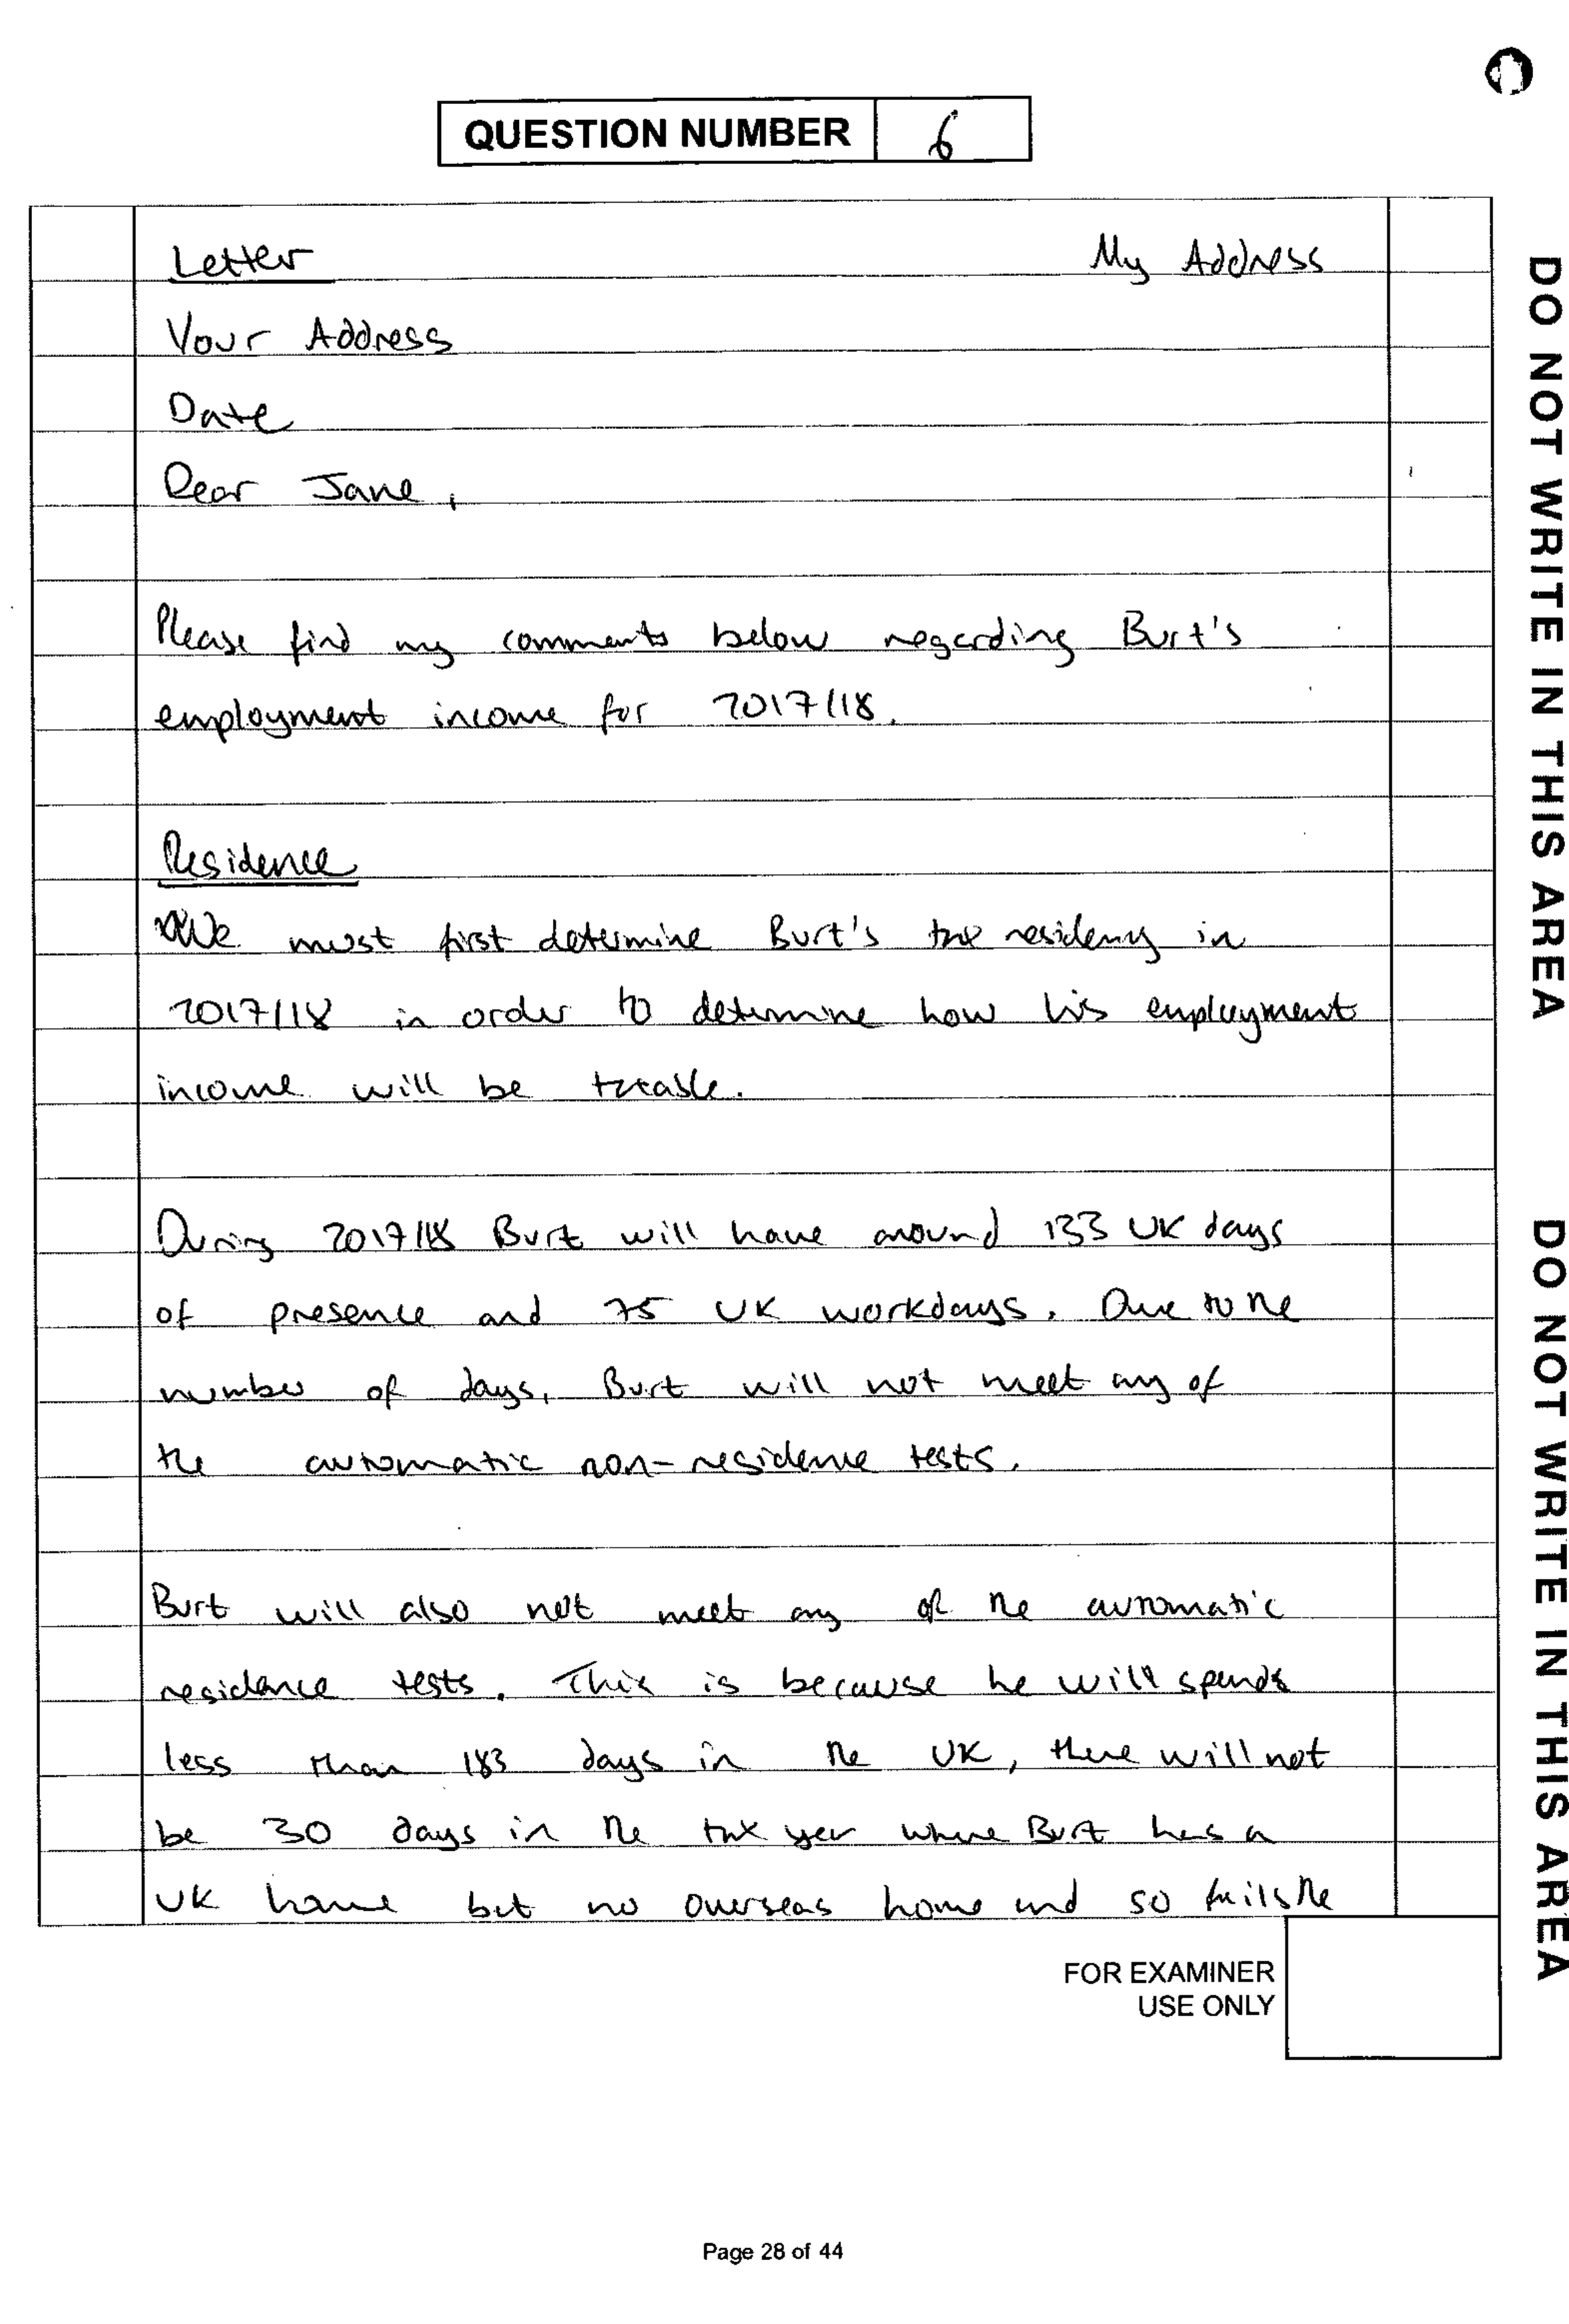 QUESTION NUMBER 6
Letter My Address
Your Address
Date
Dear Jane,
Please find my comments below regarding Burt's
employment income for 2017/18.
Residence
We must first determine Burt's tax residency in
2017/18 in order to determine how his employment
income will be taxable.
During 2017/18 Burt will have around 133 UK days
of presence and 75 UK workdays. Due to the
number of days, Burt will not meet any of
the automatic non-residence tests.
Burt will also not meet any of the automatic
residence tests. This is because he will spends
less than 183 days in the UK, there will not
be 30 days in the tax year where Burt has a
UK home but no overseas home and so fails the
FOR EXAMINER
USE ONLY
Page 28 of 44
DO NOT WRITE IN THIS AREA
DO NOT WRITE IN THIS AREA